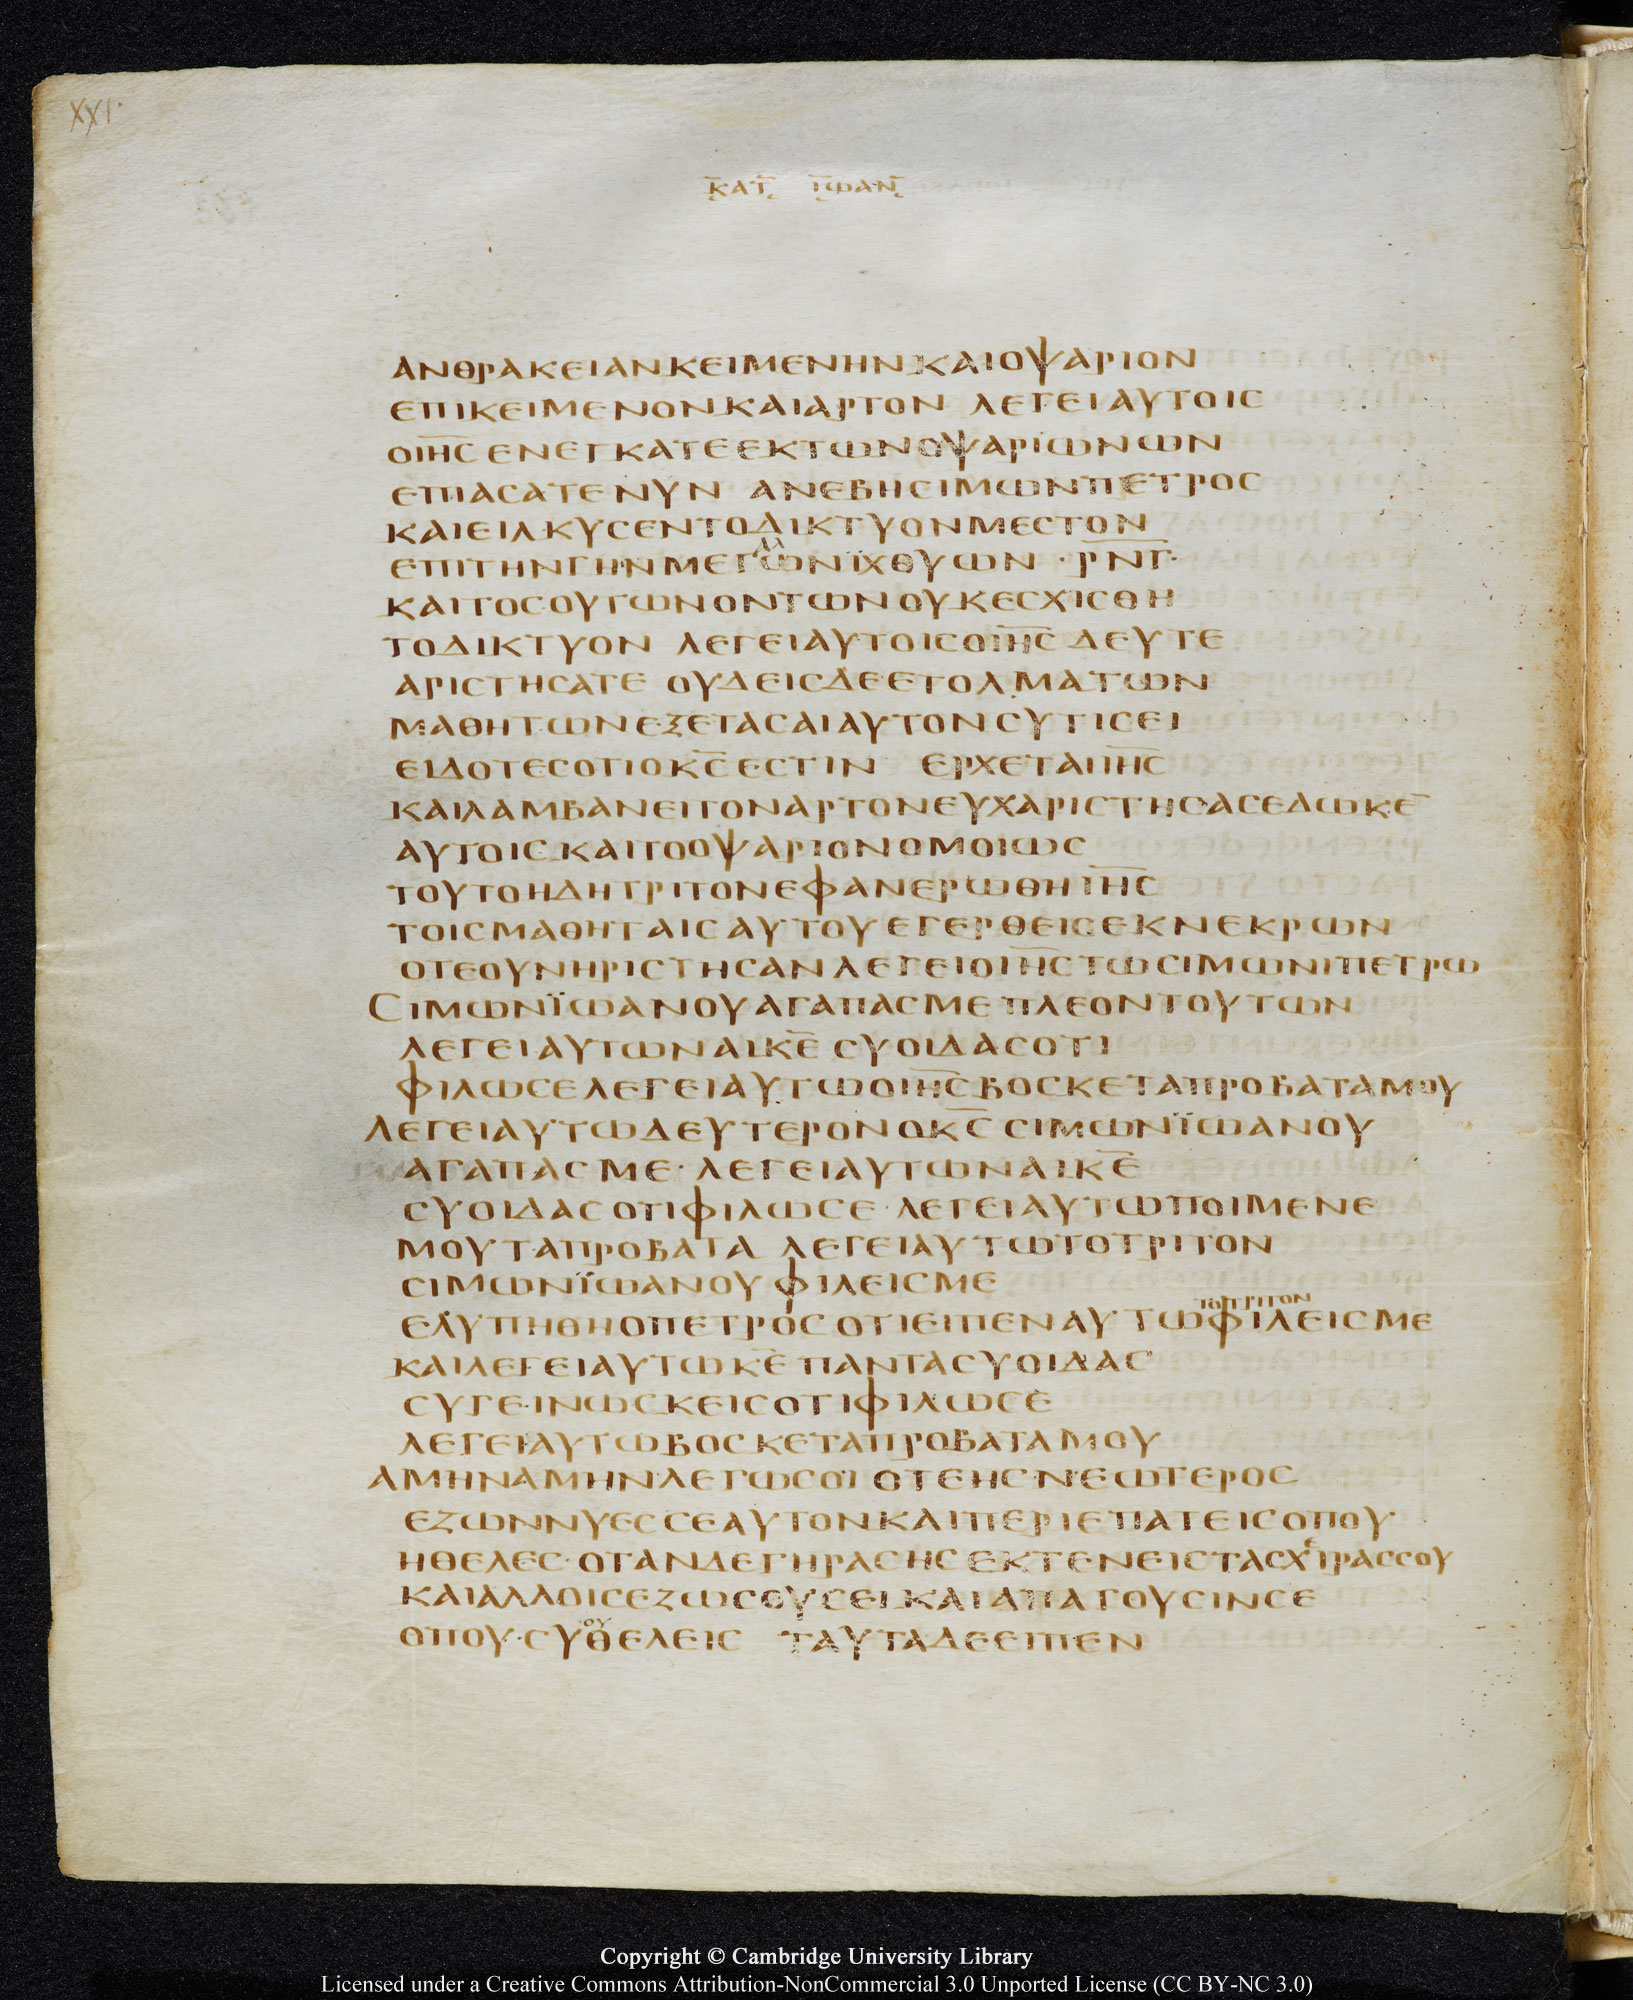 XXI.
ΚΑΤ ΙΩΑΝ
ΑΝΘΡΑΚΕΙΑΝΚΕΙΜΕΝΗΝΚΑΙΟΨΑΡΙΟΝ
ΕΠΙΚΕΙΜΕΝΟΝΚΑΙΑΡΤΟΝ ΛΕΓΕΙΑΥΤΟΙϹ
ΟΙΗϹ ΕΝΕΓΚΑΤΕΕΚΤΩΝΟΨΑΡΙΩΝΩΝ
ΕΠΙΑϹΑΤΕΝΥΝ ΑΝΕΒΗϹΙΜΩΝΠΕΤΡΟϹ
ΚΑΙΕΙΛΚΥϹΕΝΤΟΔΙΚΤΥΟΝΜΕϹΤΟΝ
ΕΠΙΤΗΝΓΗΝΜΕΓ´ΑΛ`ΩΝΙΧΘΥΩΝ · ΡΝΓ·
ΚΑΙΤΟϹΟΥΤΩΝΟΝΤΩΝΟΥΚΕϹΧΙϹΘΗ
ΤΟΔΙΚΤΥΟΝ ΛΕΓΕΙΑΥΤΟΙϹΟΙΗϹ ΔΕΥΤΕ
ΑΡΙϹΤΗϹΑΤΕ ΟΥΔΕΙϹΔΕΕΤΟΛΜΑΤΩΝ
ΜΑΘΗΤΩΝΕΞΕΤΑϹΑΙΑΥΤΟΝϹΥΤΙϹΕΙ
ΕΙΔΟΤΕϹΟΤΙΟΚϹ ΕϹΤΙΝ ΕΡΧΕΤΑΙΙΗϹ
ΚΑΙΛΑΜΒΑΝΕΙΤΟΝΑΡΤΟΝΕΥΧΑΡΙϹΤΗϹΑϹΕΔΩΚΕ̅
ΑΥΤΟΙϹΚΑΙΤΟΟΨΑΡΙΟΝΟΜΟΙΩϹ
ΤΟΥΤΟΗΔΗΤΡΙΤΟΝΕΦΑΝΕΡΩΘΗΙΗϹ
ΤΟΙϹΜΑΘΗΤΑΙϹΑΥΤΟΥΕΓΕΡΘΕΙϹΕΚΝΕΚΡΩΝ
ΟΤΕΟΥΝΗΡΙϹΤΗϹΑΝΛΕΓΕΙΟΙΗϹΤΩϹΙΜΩΝΙΠΕΤΡΩ
ϹΙΜΩΝΪΩΑΝΟΥΑΓΑΠΑϹΜΕΠΛΕΟΝΤΟΥΤΩΝ
ΛΕΓΕΙΑΥΤΩΝΑΙΚΕ ϹΥΟΙΔΑϹΟΤΙ
ΦΙΛΩϹΕΛΕΓΕΙΑΥΤΩΟΙΗϹΒΟϹΚΕΤΑΠΡΟΒΑΤΑΜΟΥ
ΛΕΓΕΙΑΥΤΩΔΕΥΤΕΡΟΝΟΚϹ ϹΙΜΩΝΪΩΑΝΟΥ
ΑΓΑΠΑϹΜΕ· ΛΕΓΕΙΑΥΤΩΝΑΙΚΕ
ϹΥΟΙΔΑϹΟΤΙΦΙΛΩϹΕ· ΛΕΓΕΙΑΥΤΩΠΟΙΜΕΝΕ
ΜΟΥΤΑΠΡΟΒΑΤΑ ΛΕΓΕΙΑΥΤΩΤΟΤΡΙΤΟΝ
ϹΙΜΩΝΪΩΑΝΟΥΦΙΛΕΙϹΜΕ
ΕΛΥΠΗΘΗΟΠΕΤΡΟϹΟΤΙΕΙΠΕΝΑΥΤΩ´ΤΟΤΡΙΤΟΝ`ΦΙΛΕΙϹΜΕ
ΚΑΙΛΕΓΕΙΑΥΤΩΚΕ ΠΑΝΤΑϹΥΟΙΔΑϹ
ϹΥΓΕΙΝΩϹΚΕΙϹΟΤΙΦΙΛΩϹΕ
ΛΕΓΕΙΑΥΤΩΒΟϹΚΕΤΑΠΡΟΒΑΤΑΜΟΥ
ΑΜΗΝΑΜΗΝΛΕΓΩϹΟΙ ΟΤΕΗϹΝΕΩΤΕΡΟϹ
ΕΖΩΝΝΥΕϹϹΕΑΥΤΟΝΚΑΙΠΕΡΙΕΠΑΤΕΙϹΟΠΟΥ
ΗΘΕΛΕϹ· ΟΤΑΝΔΕΓΗΡΑϹΗϹ ΕΚΤΕΝΕΙϹΤΑϹΧ´Ε`ΙΡΑϹϹΟΥ
ΚΑΙΑΛΛΟΙϹΕΖΩϹΟΥϹΕΙΚΑΙΑΠΑΓΟΥϹΙΝϹΕ
ΟΠΟΥ·ϹΥ´ΟΥ`ΘΕΛΕΙϹ ΤΑΥΤΑΔΕΕΙΠΕΝ
Copyright © Cambridge University Library
Licensed under a Creative Commons Attribution-NonCommercial 3.0 Unported License (CC BY-NC 3.0)